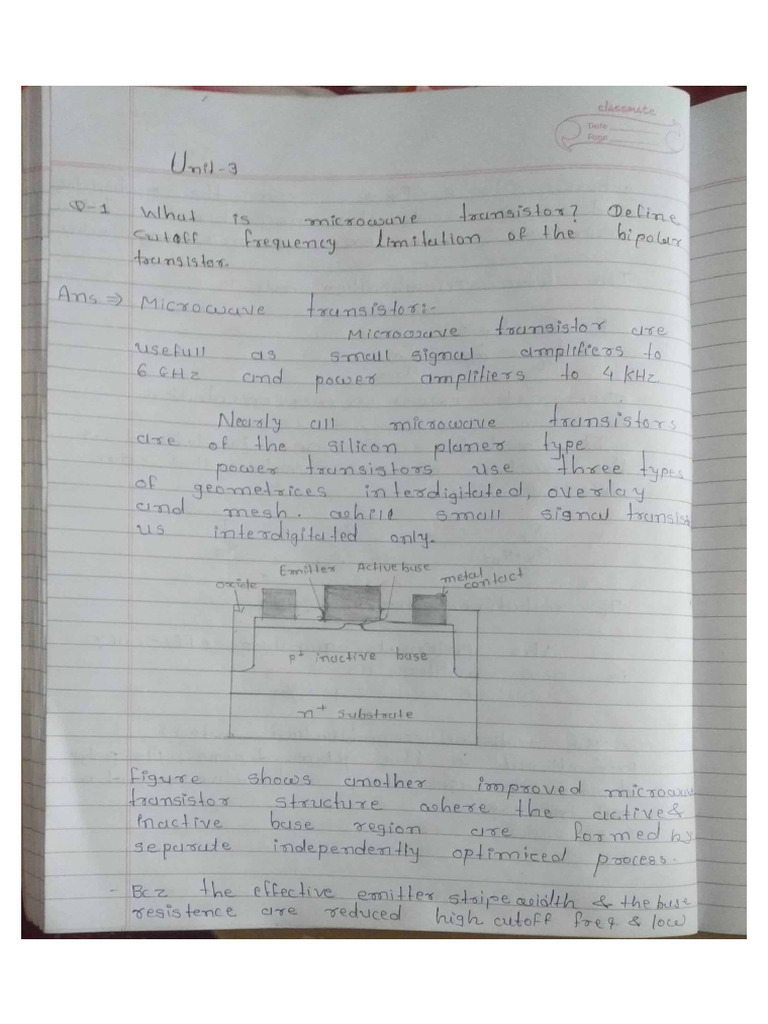 classmate
Date
Page
Unit-3
Q-1 What is microwave transistor? Define
cutoff frequency limitation of the bipolar
transistor.
Ans ⇒ Microwave transistor:-
Microwave transistor are
usefull as small signal amplifiers to
6 GHz and power amplifiers to 4 KHz
Nearly all microwave transistors
are of the silicon planer type
power transistors use three types
of geometrices interdigitated, overlay
and mesh. while small signal transist
us interdigitated only.
Emitter Active base
oxide metal
contact
p+ inactive base
n+ substrate
- Figure shows another improved microwave
transistor structure where the active &
Inactive base region are formed by
separate independently optimiced process.
- Bcz the effective emitter stripe width & the base
resistence are reduced high cutoff freq & low